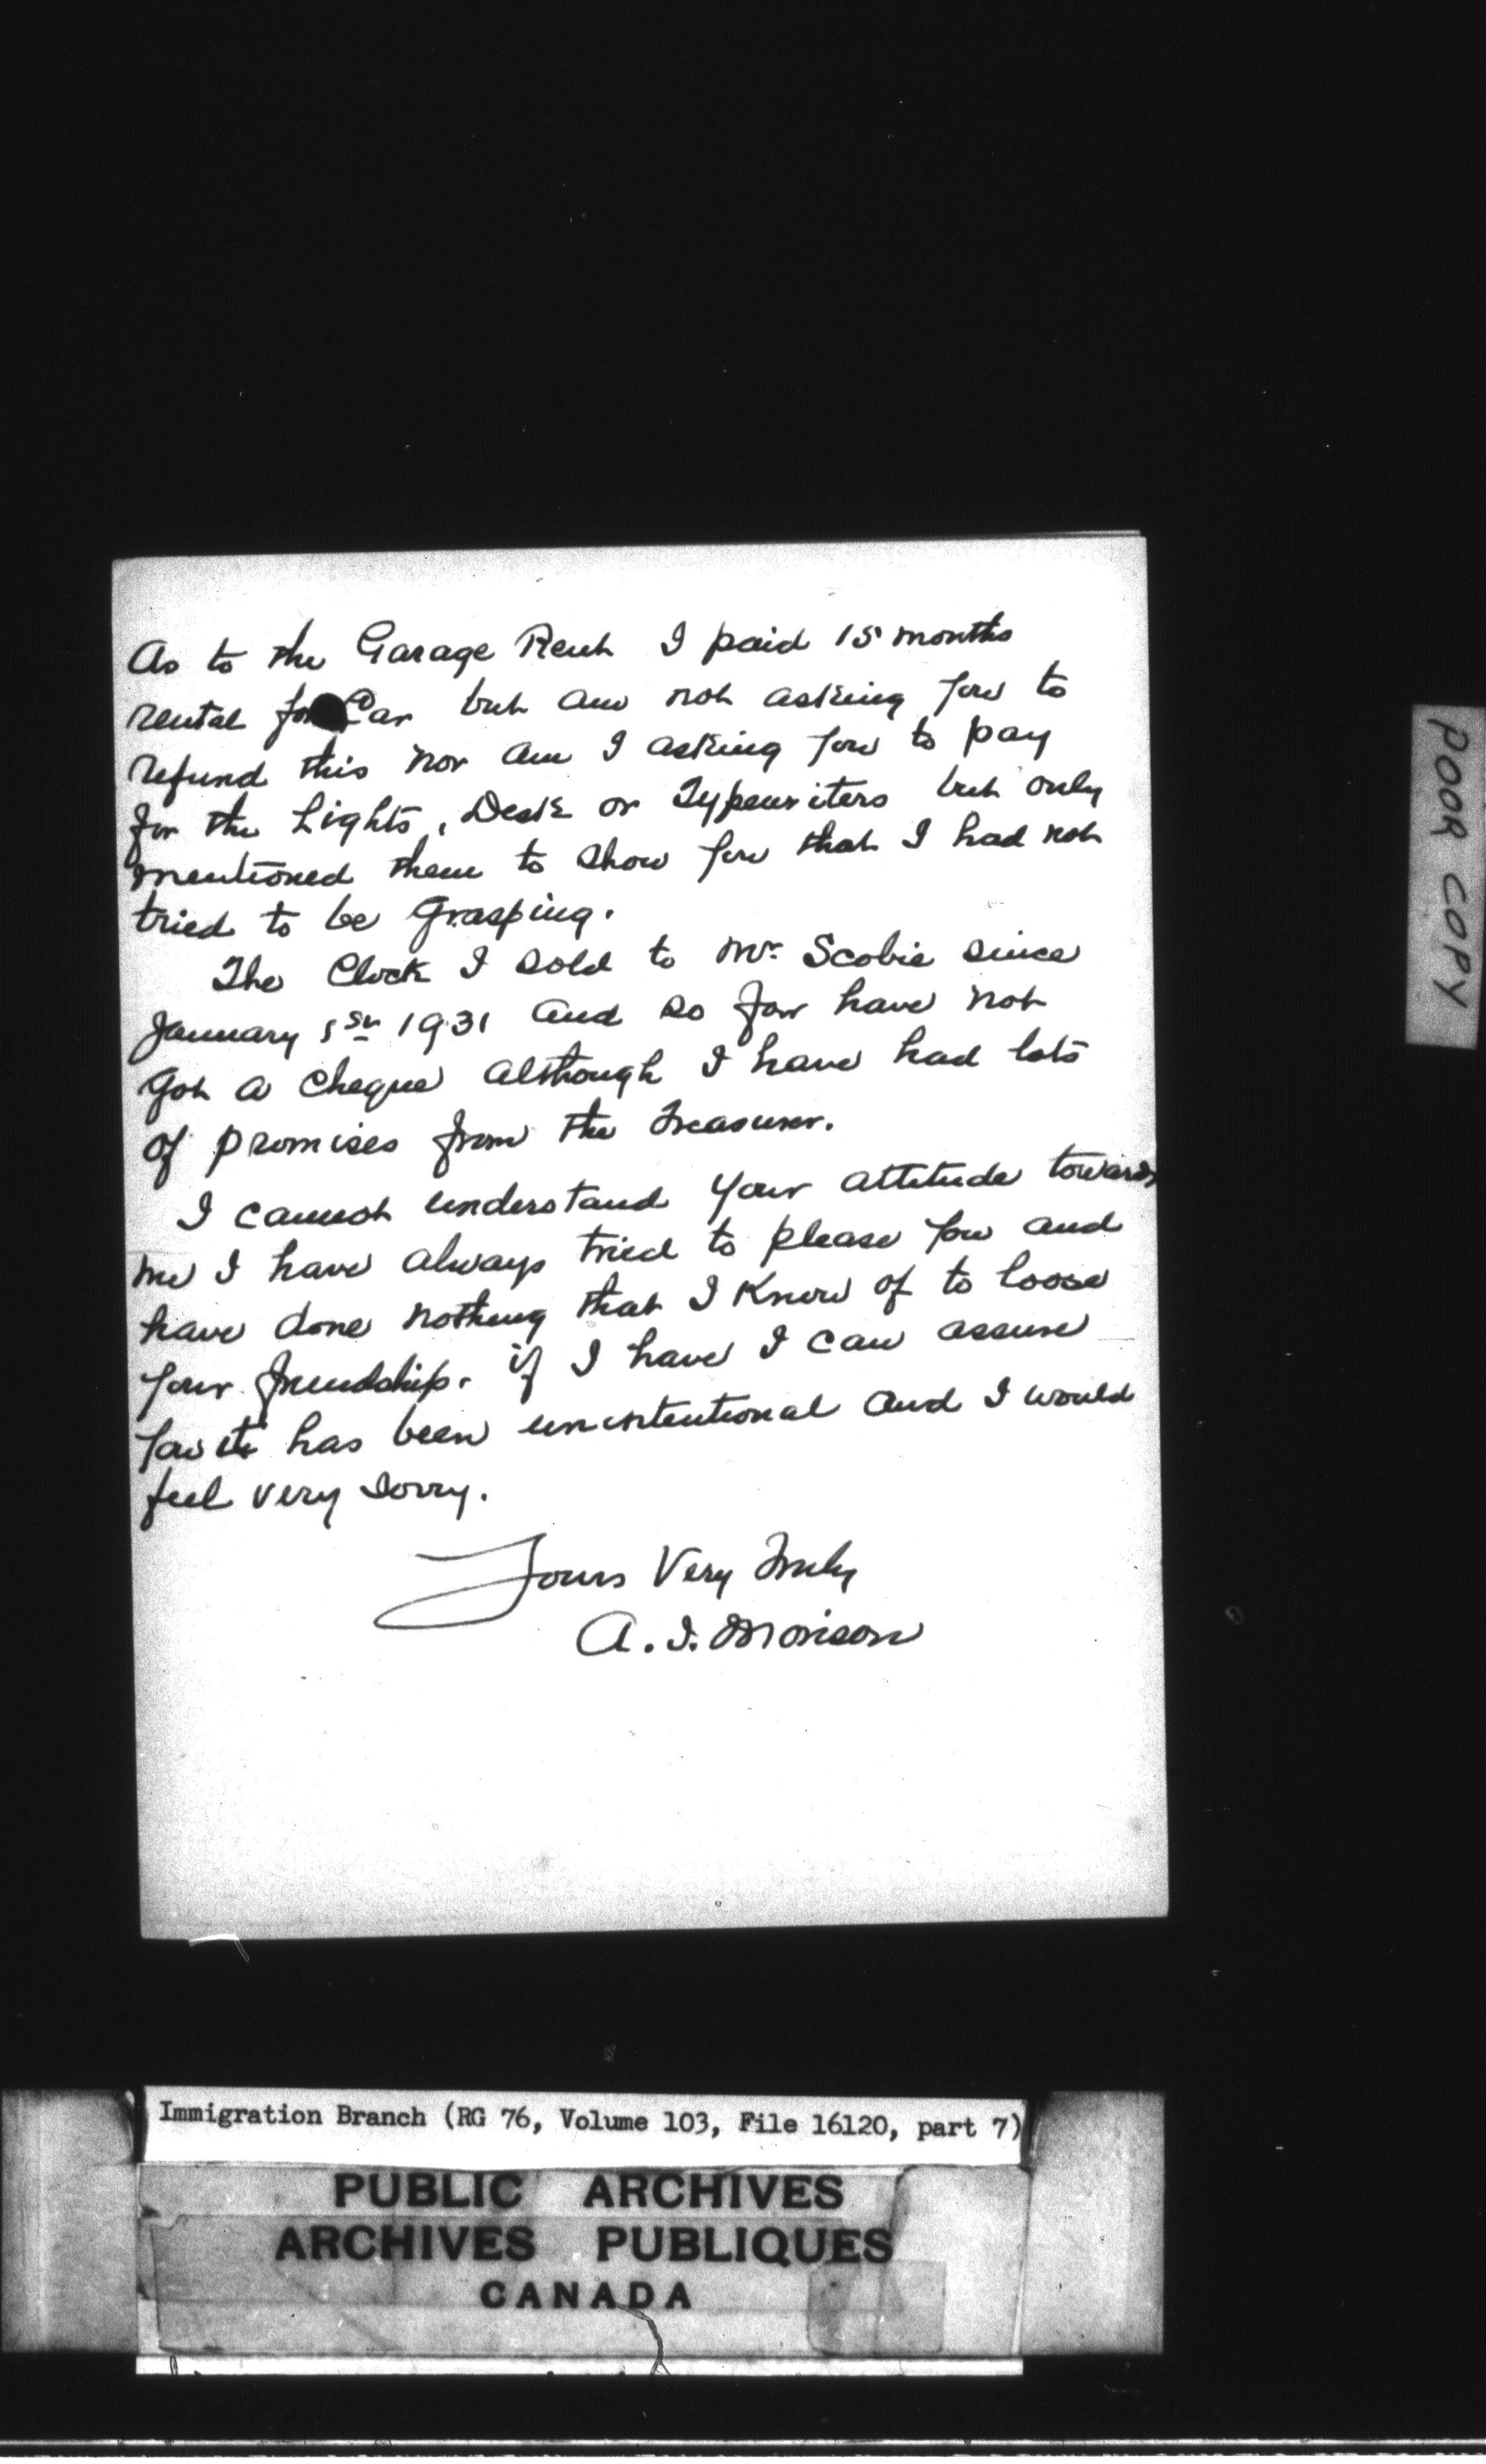 As to the Garage Rent I paid 15 months
rental for Car but am not asking you to
refund this nor am I asking you to pay
for the Lights, Desk or Typewriters but only
mentioned them to show you that I had not
tried to be Grasping.
The Clock I sold to Mr. Scobie since
January 1st 1931 and so far have not
got a cheque although I have had lots
of promises from the Treasurer.
I cannot understand your attitude towards
me I have always tried to please you and
have done nothing that I know of to loose
your friendship. if I have I can assure
you it has been unintentional and I would
feel very sorry.
Yours Very Truly
A. I. Morison
POOR COPY
Immigration Branch (RG 76, Volume 103, File 16120, part 7)
PUBLIC ARCHIVES
ARCHIVES PUBLIQUES
CANADA